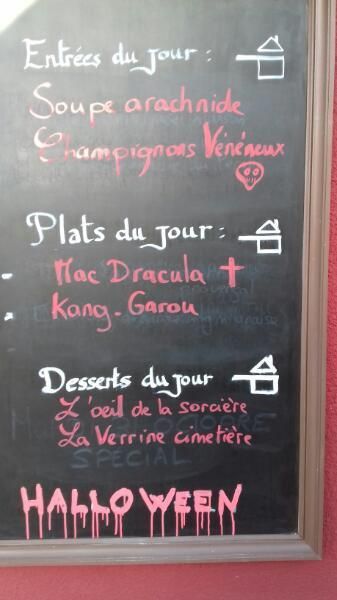 Entrées du jour :
Soupe arachnide
Champignons Vénéneux
Plats du jour :
- Mac Dracula
- Kang-Garou
Desserts du jour
L'oeil de la sorcière
La Verrine cimetière
OCTOBRE
SPECIAL
HALLOWEEN